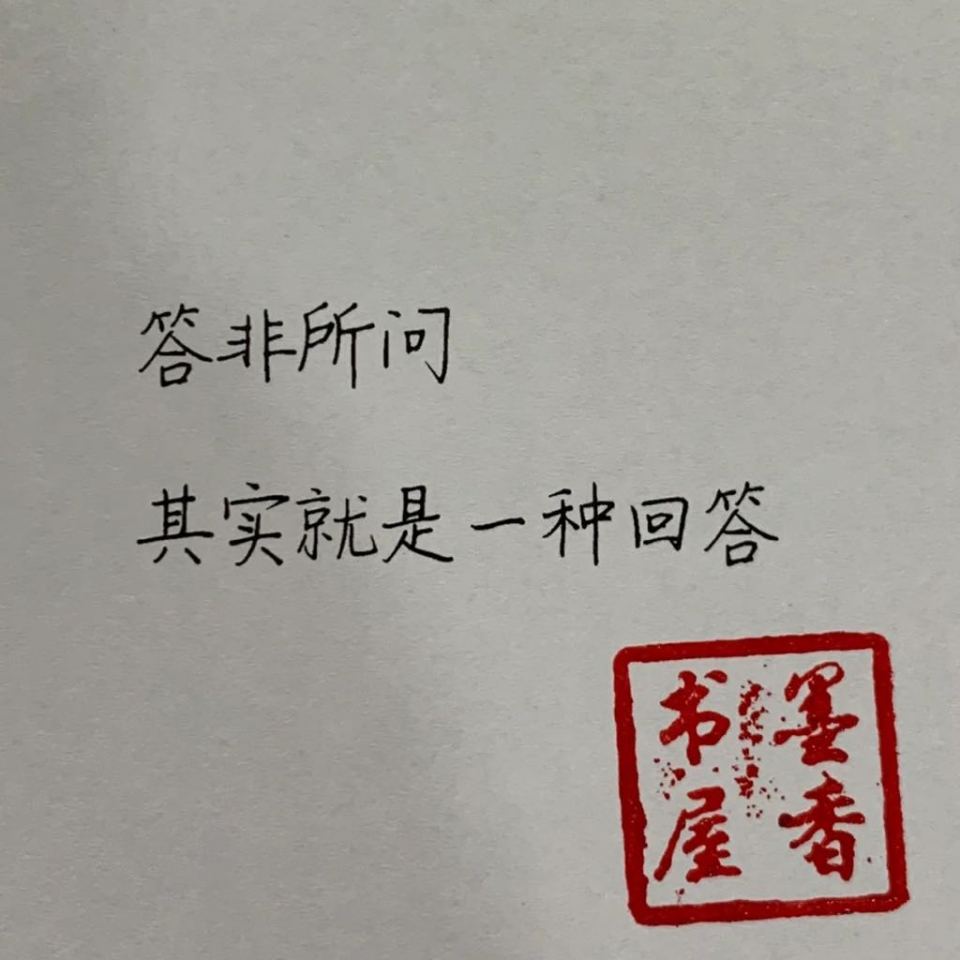 答非所问
其实就是一种回答
墨香
书屋